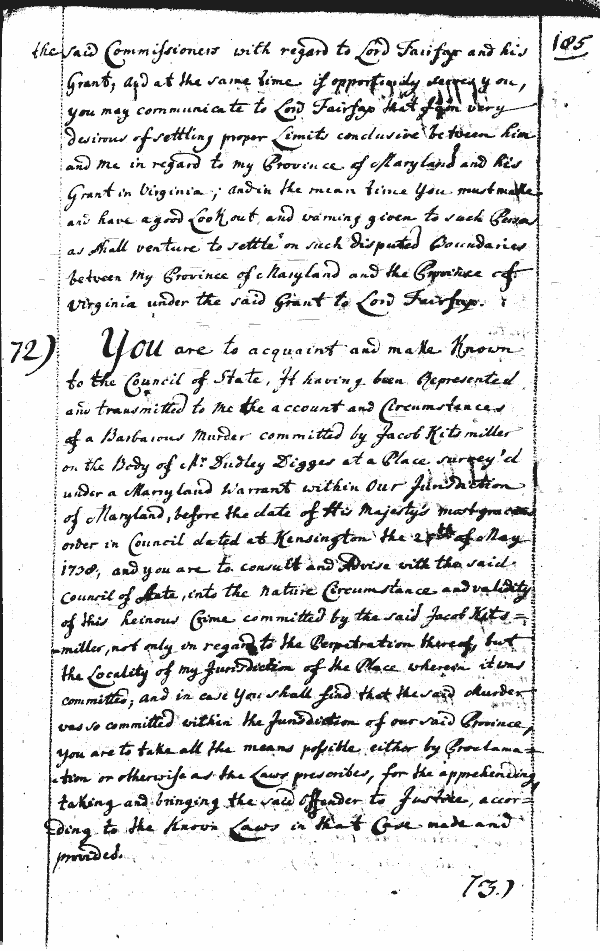 185
the said Commissioners with regard to Lord Fairfax and his
Grant, and at the same time if opportunity serves you,
you may communicate to Lord Fairfax that I am very
desirous of settling proper Limits conclusive between him
and me in regard to my Province of Maryland and his
Grant in Virginia; and in the mean time You must make
and have a good Look out, and warning given to such Persons
as shall venture to settle on such disputed Boundaries
between my Province of Maryland and the Province of
Virginia under the said Grant to Lord Fairfax.
72) You are to acquaint and make Known
to the Council of State, It having been Represented
and transmitted to me the account and Circumstances
of a Barbarous Murder committed by Jacob Kitsmiller
on the Body of Mr. Dudley Digges at a Place survey'd
under a Marryland Warrant within Our Jurisdiction
of Maryland, before the date of His Majesty's most gracious
order in Council dated at Kensington the 25th of May
1738, and you are to consult and Advise with the said
Council of State, into the Nature Circumstance and validity
of this heinous Crime committed by the said Jacob Kits=
=miller, not only in regard to the Perpetration thereof, but
the Locality of my Jurisdiction of the Place wherein it was
committed; and in case You shall find that the said Murder
was so committed within the Jurisdiction of our said Province,
You are to take all the means possible either by Proclama=
=tion or otherwise as the Laws prescribes, for the apprehending
taking and bringing the said offender to Justice, accor=
=ding to the Known Laws in that Case made and
provided.
73.)